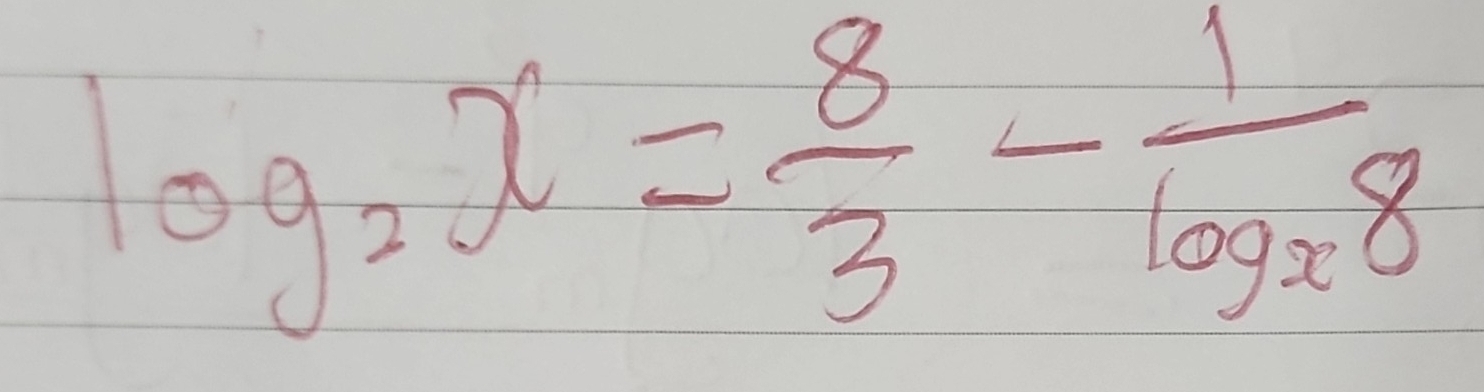 log₂ x = 8/3 - 1/logₓ 8